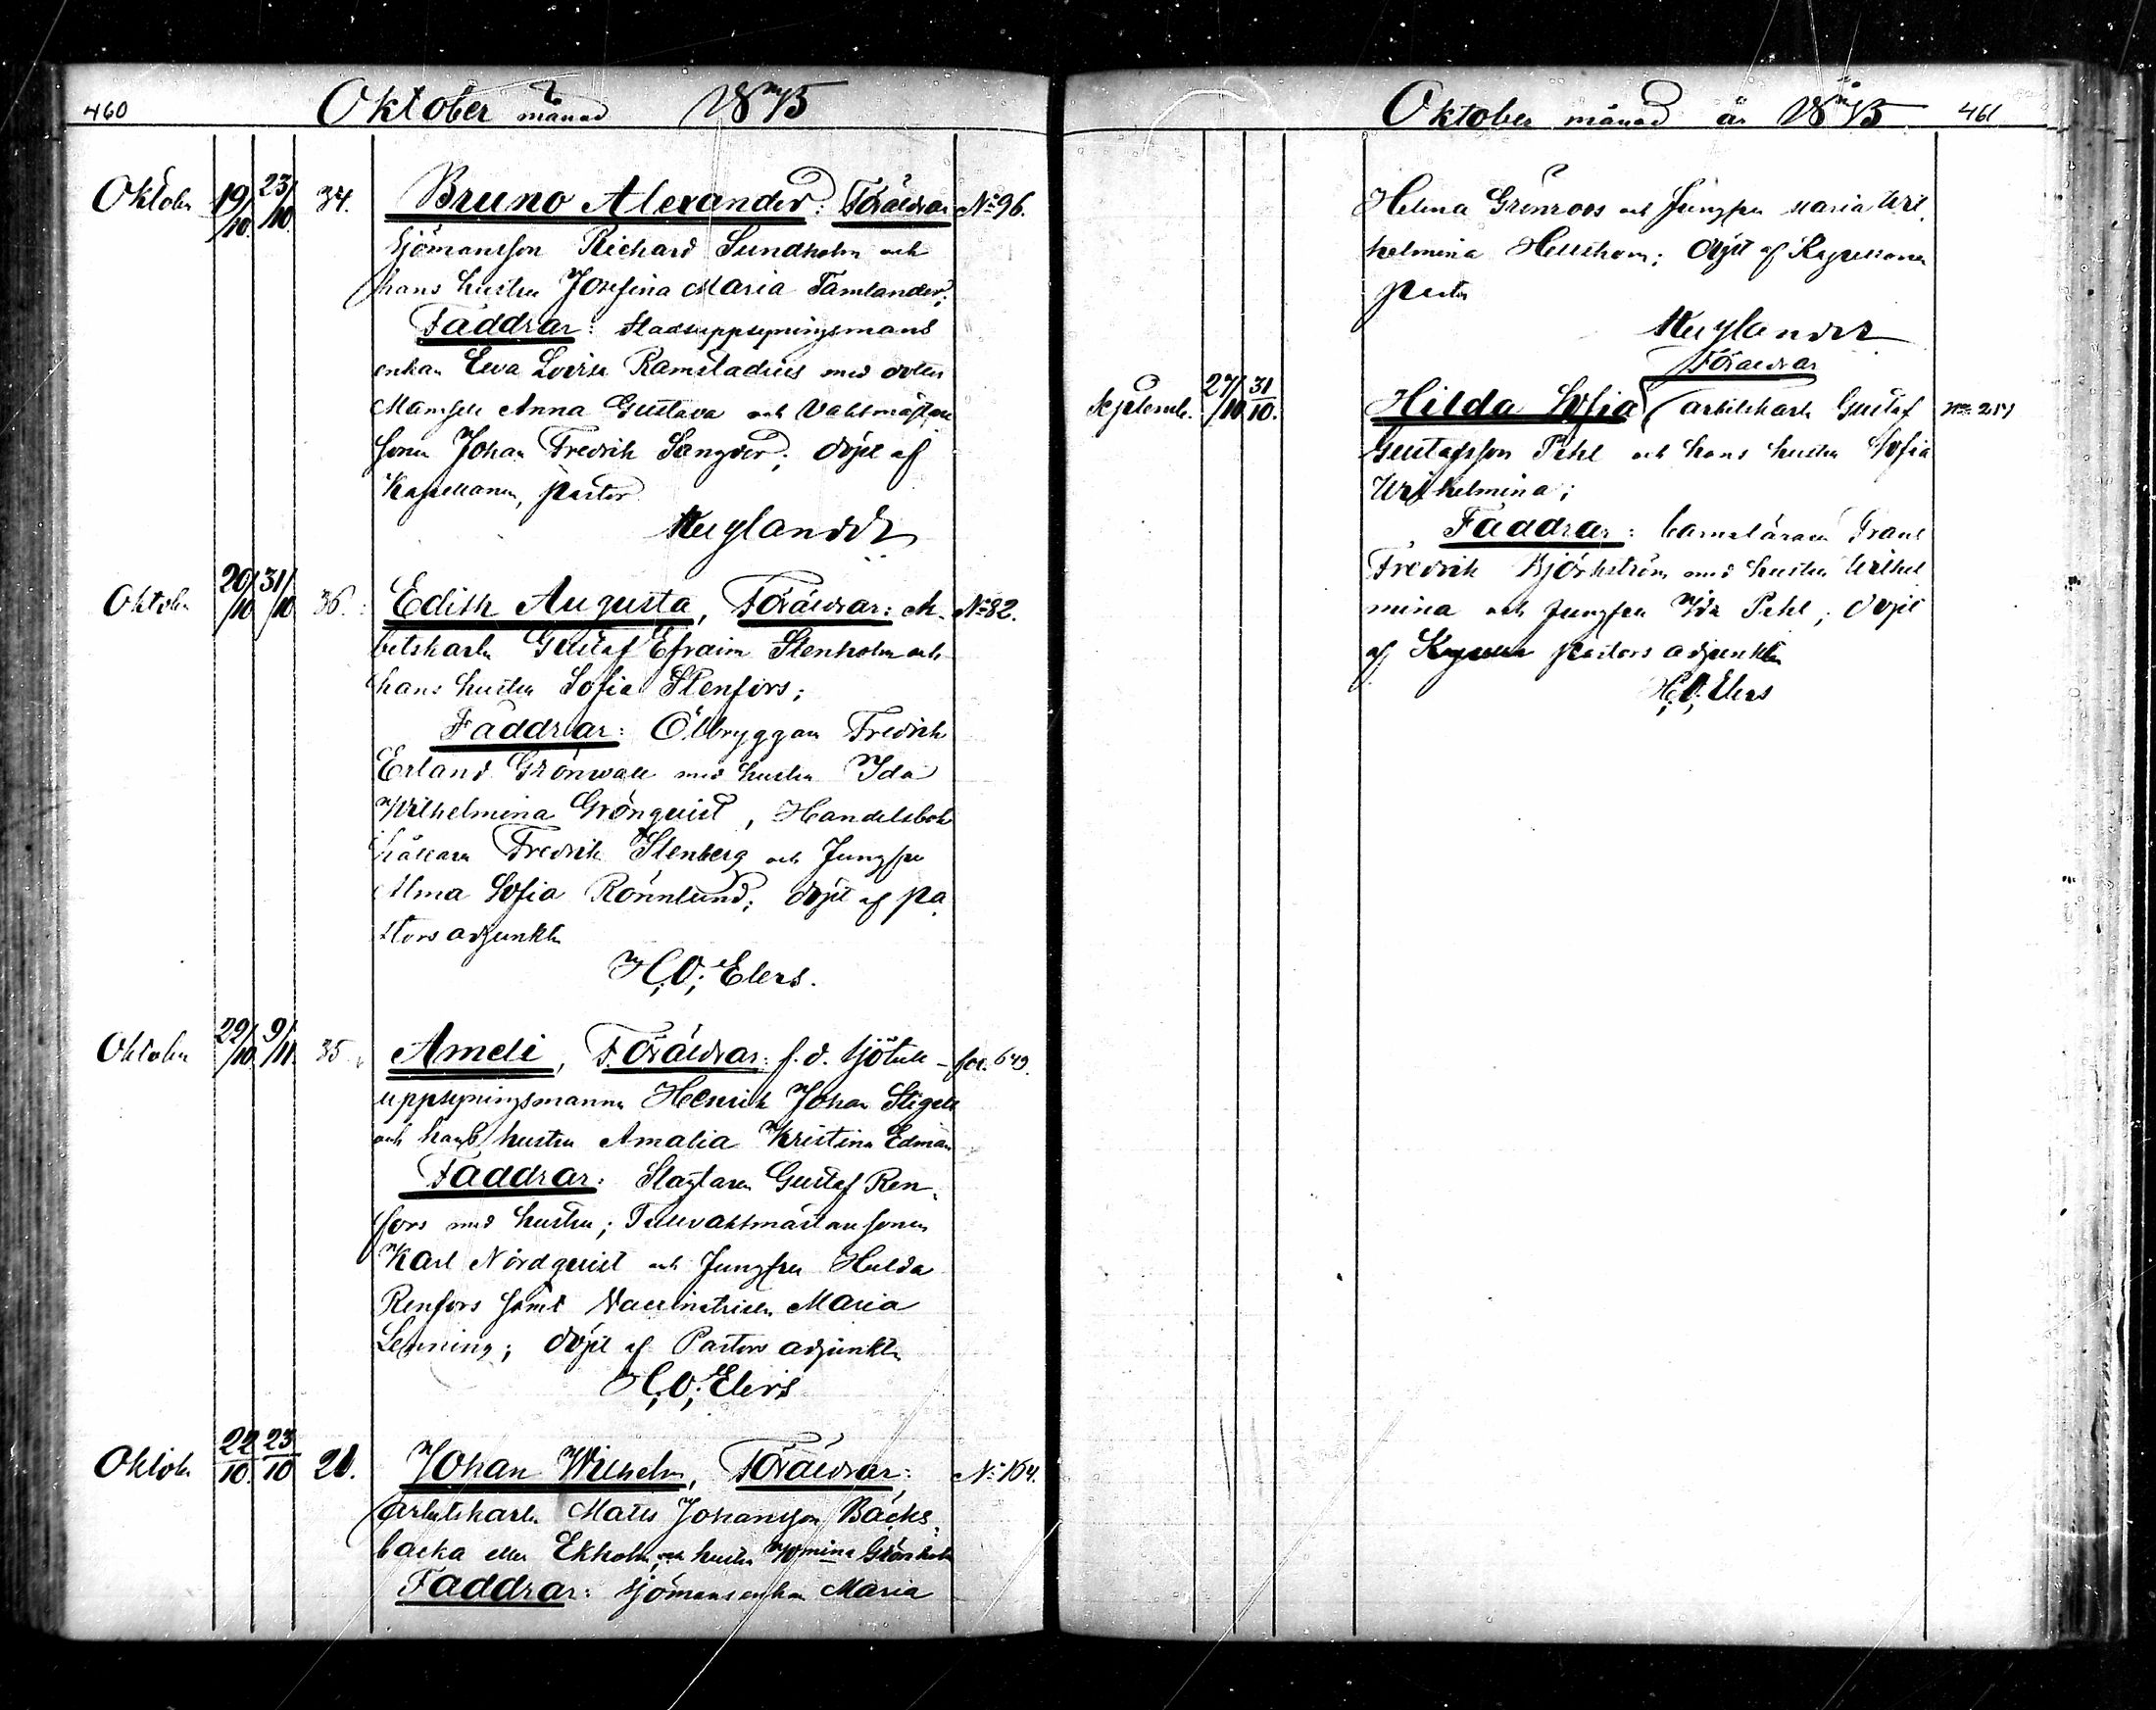 460
Oktober månad 1875
Oktober 19/10 23/10 34. Bruno Alexander: Föräldrar No 96.
Sjömansson Richard Sundholm och
hans hustru Josefina Maria Tamlander;
Faddrar: Stadsuppsyningsmans
enkan Eva Lovisa Ramstadius med dotter
Mamsell Anna Gustava och Vaktmästare
sonen Johan Fredrik Sanger; döpt af
Kapellanen, pastor
Nuylander
Oktober 20/10 31/10 36. Edith Augusta, Föräldrar: Ar- No 82.
betskarlen Gustaf Efraim Stenholm och
hans hustru Sofia Stenfors;
Faddrar: Ölbryggaren Fredrik
Erland Grönwall med hustru Ida
Wilhelmina Grönquist, Handelsbok
hållaren Fredrik Stenberg och Jungfru
Alma Sofia Rönnlund; döpt af pa
stors adjunkten
H. O. Elers.
Oktober 22/10 9/11 35 Ameli, Föräldrar: f. d. sjötull- fol. 649.
uppsyningsmannen Henrik Johan Stigell
och hans hustru Amalia Kristina Edman
Faddrar: Slagtaren Gustaf Ren-
fors med hustru; Tullvaktmästaresonen
Karl Nordquist och Jungfru Hulda
Renfors samt Vaccinatrisen Maria
Lenning; döpt af Pastors adjunkten
H. O. Elers
Oktober 22/10 23/10 21. Johan Wilhelm, Föräldrar: No 164.
arbetskarlen Matts Johansson Backs-
backa eller Ekholm, och hustru Wmina Grönholm
Faddrar: sjömansenkan Maria
Oktober månad år 1875 461
Helena Grönroos och Jungfru Maria Wil
helmina Hellstrom; döpt af Kapellanen
pastor
Nuylander
Föräldrar
Septemb. 27/10 31/10. Hilda Sofia (arbetskarlen Gustaf No 251
Gustafsson Pehl och hans hustru Sofia
Wilhelmina;
Faddrar: barnaläraren Frans
Fredrik Björkström med hustru Wilhel
mina och Jungfru Ida Pehl; döpt
af pastors adjunkten
H. O. Elers